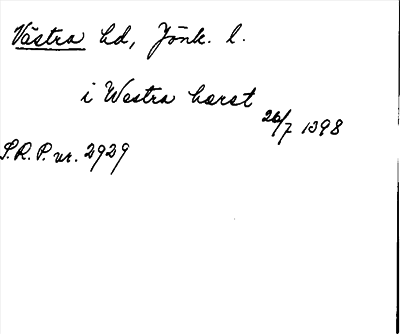 Västra hd, Jönk. l.
i Westra hæret
26/7 1398
S.R.P. nr. 2929